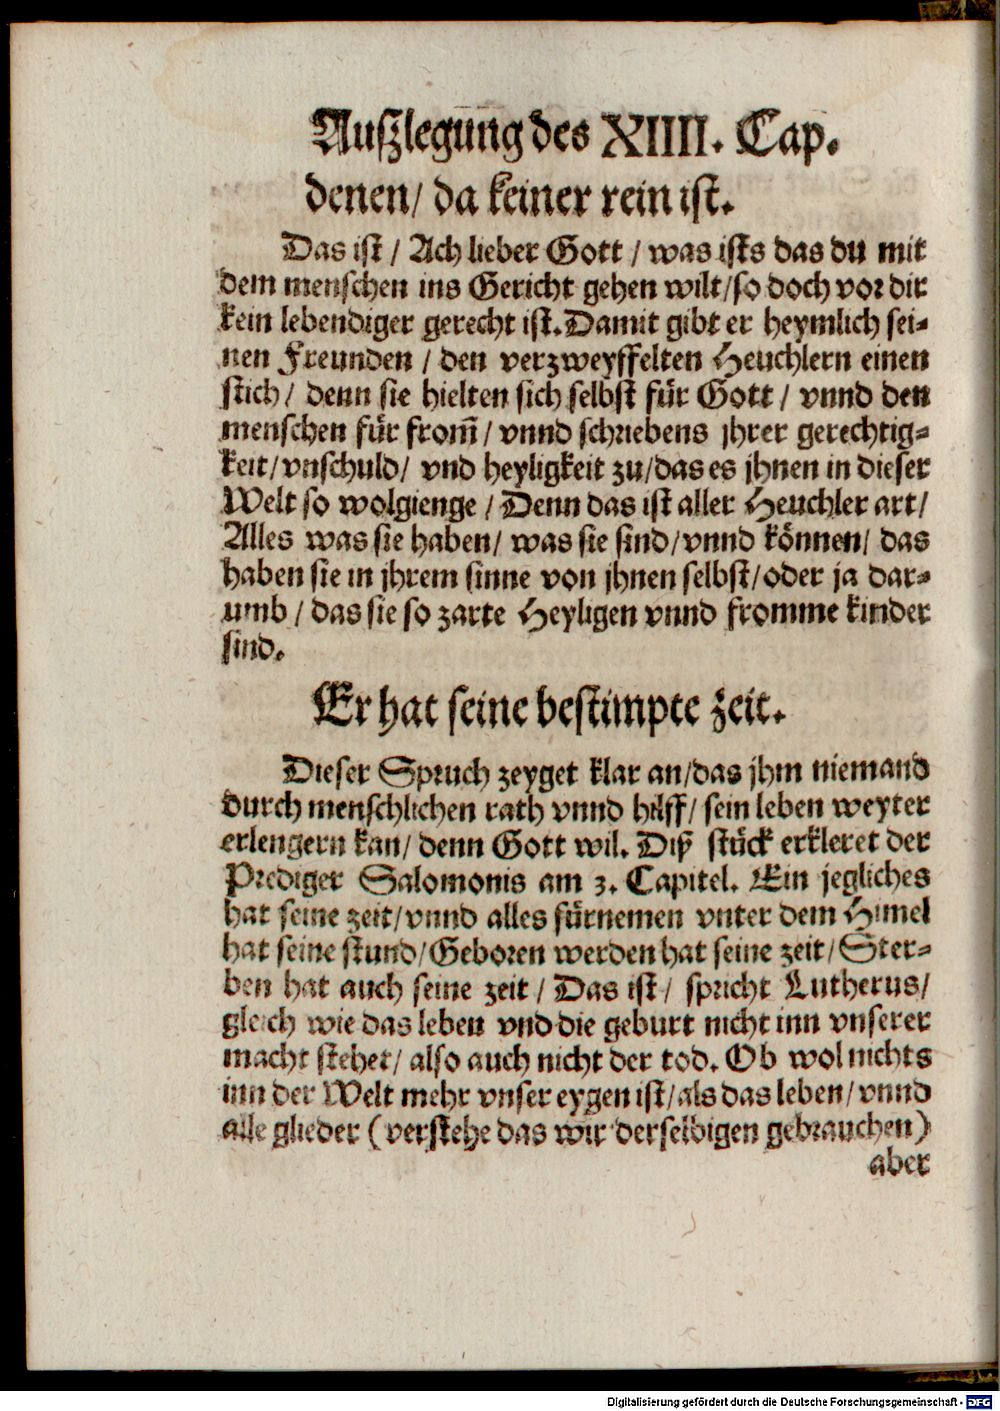 Außlegung des XIIII. Cap.
denen/ da keiner rein ist.
Das ist / Ach lieber Gott / was ists das du mit
dem menschen ins Gericht gehen wilt/so doch vor dir
kein lebendiger gerecht ist. Damit gibt er heymlich sei-
nen Freunden / den verzweyffelten Heuchlern einen
stich / denn sie hielten sich selbst für Gott / vnnd den
menschen für from̃ / vnnd schriebens jhrer gerechtig-
keit/vnschuld/ vnd heyligkeit zu/das es jhnen in dieser
Welt so wolgienge / Denn das ist aller Heuchler art/
Alles was sie haben/ was sie sind/vnnd können/ das
haben sie in jhrem sinne von jhnen selbst/oder ja dar-
umb / das sie so zarte Heyligen vnnd fromme kinder
sind.
Er hat seine bestimpte zeit.
Dieser Spruch zeyget klar an/das jhm niemand
durch menschlichen rath vnnd hülff/ sein leben weyter
erlengern kan/ denn Gott wil. Diß stück erkleret der
Prediger Salomonis am 3. Capitel. Ein jegliches
hat seine zeit/vnnd alles fürnemen vnter dem Himel
hat seine stund/Geboren werden hat seine zeit/Ster-
ben hat auch seine zeit / Das ist/ spricht Lutherus/
gleich wie das leben vnd die geburt nicht inn vnserer
macht stehet/ also auch nicht der tod. Ob wol nichts
inn der Welt mehr vnser eygen ist/als das leben/vnnd
alle glieder (verstehe das wir derselbigen gebrauchen)
aber
Digitalisierung gefördert durch die Deutsche Forschungsgemeinschaft - DFG